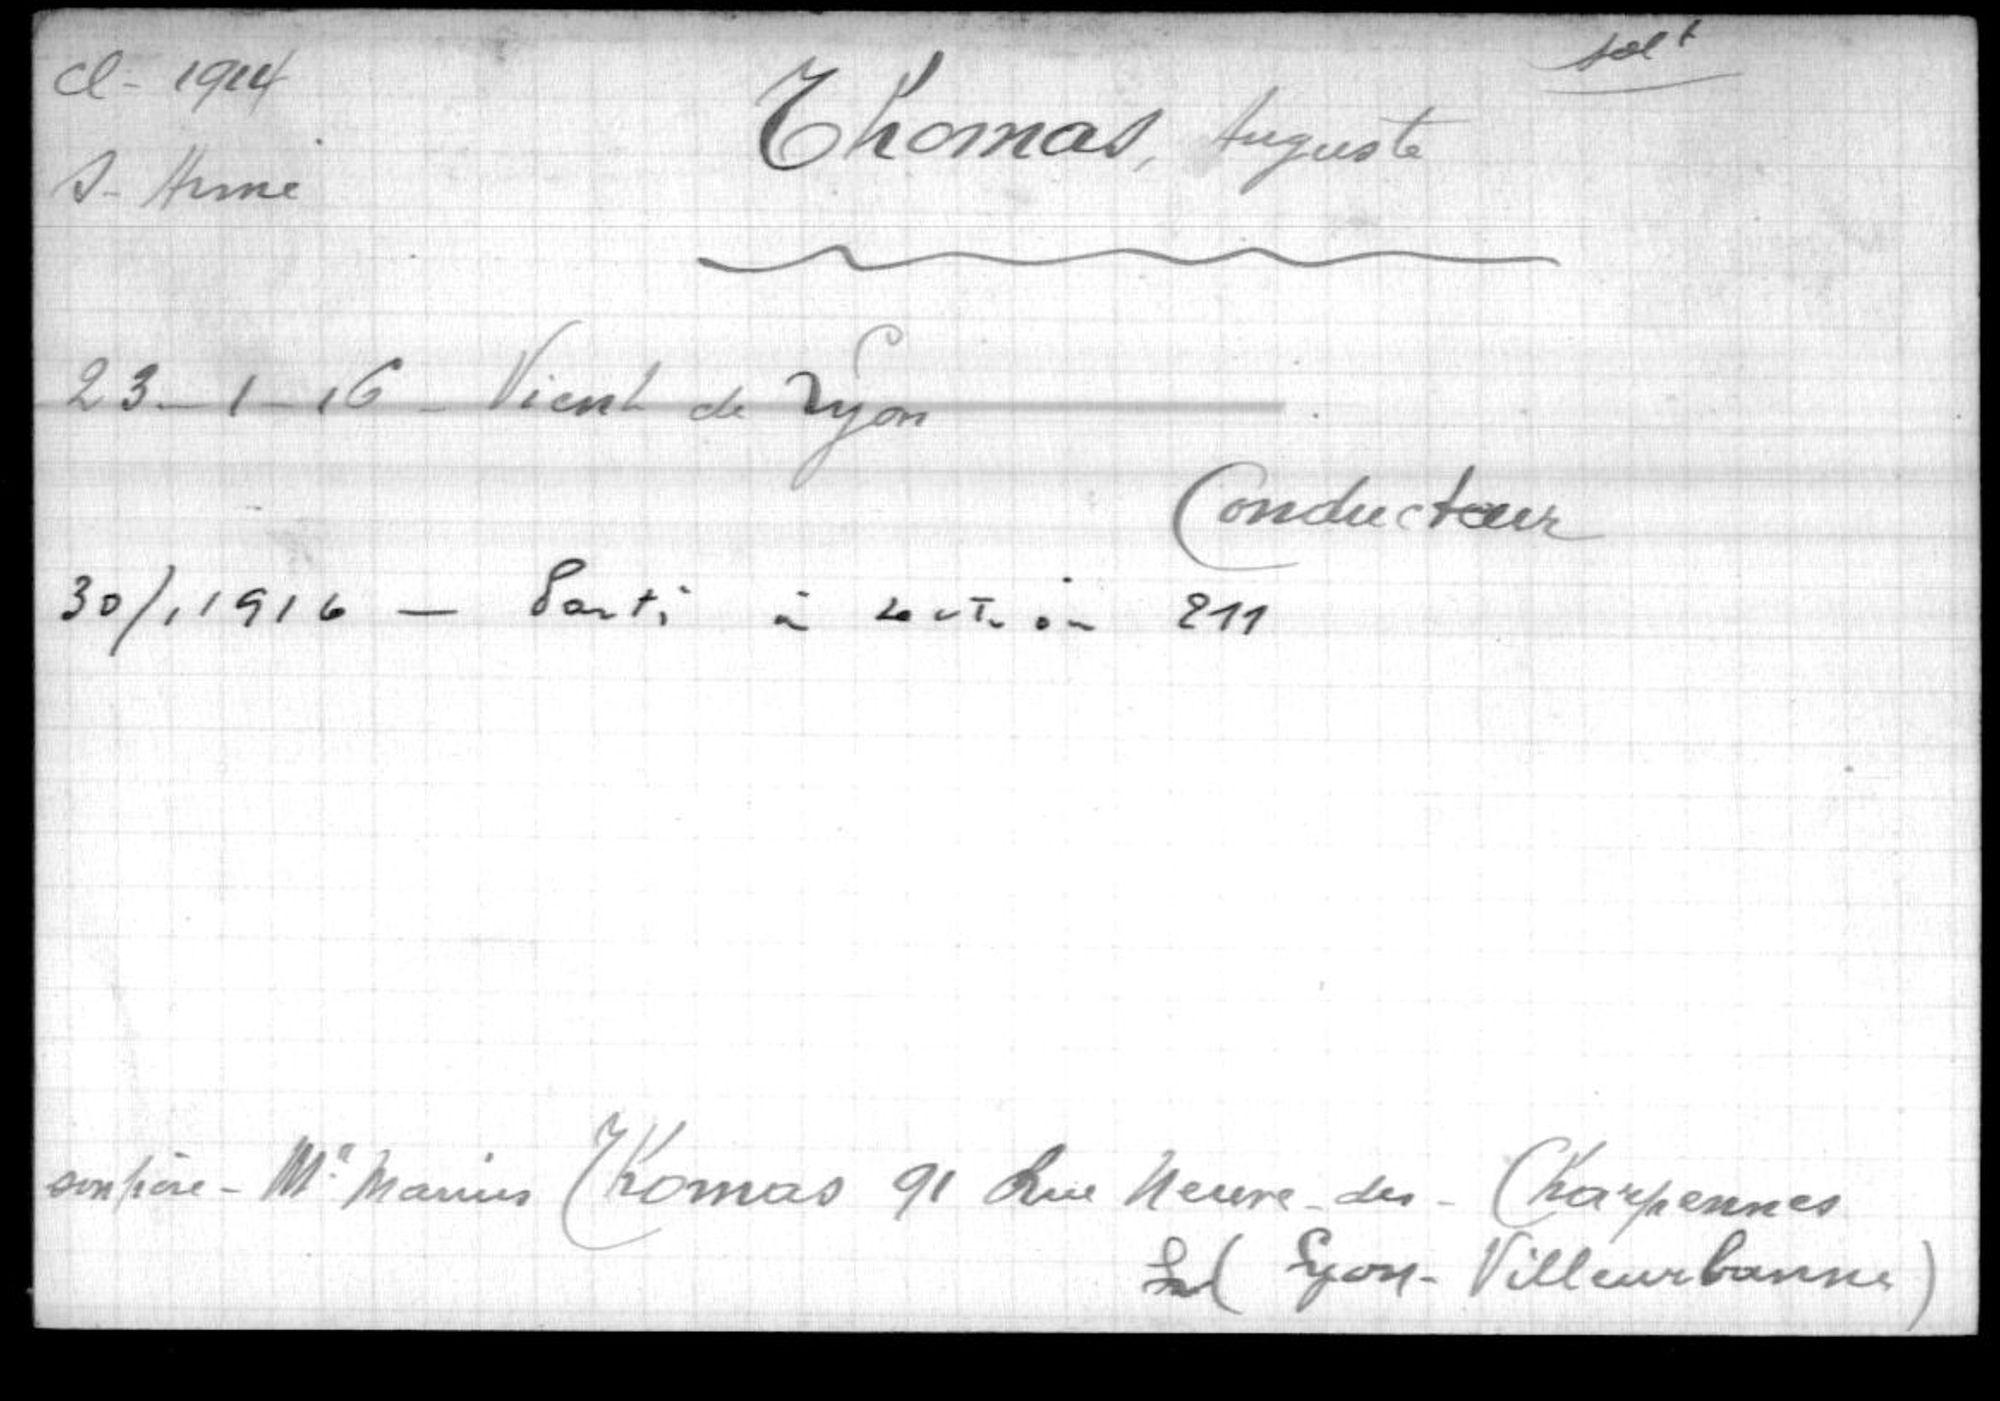 cl - 1914
solt
Thomas, Auguste
S. Armé
23 - 1 - 16 - Vient de Lyon
Conducteur
30/1 1916 — Parti à section 211
son père - Mr Marius Thomas 91 Rue Neuve - des - Charpennes
( Lyon - Villeurbanne )